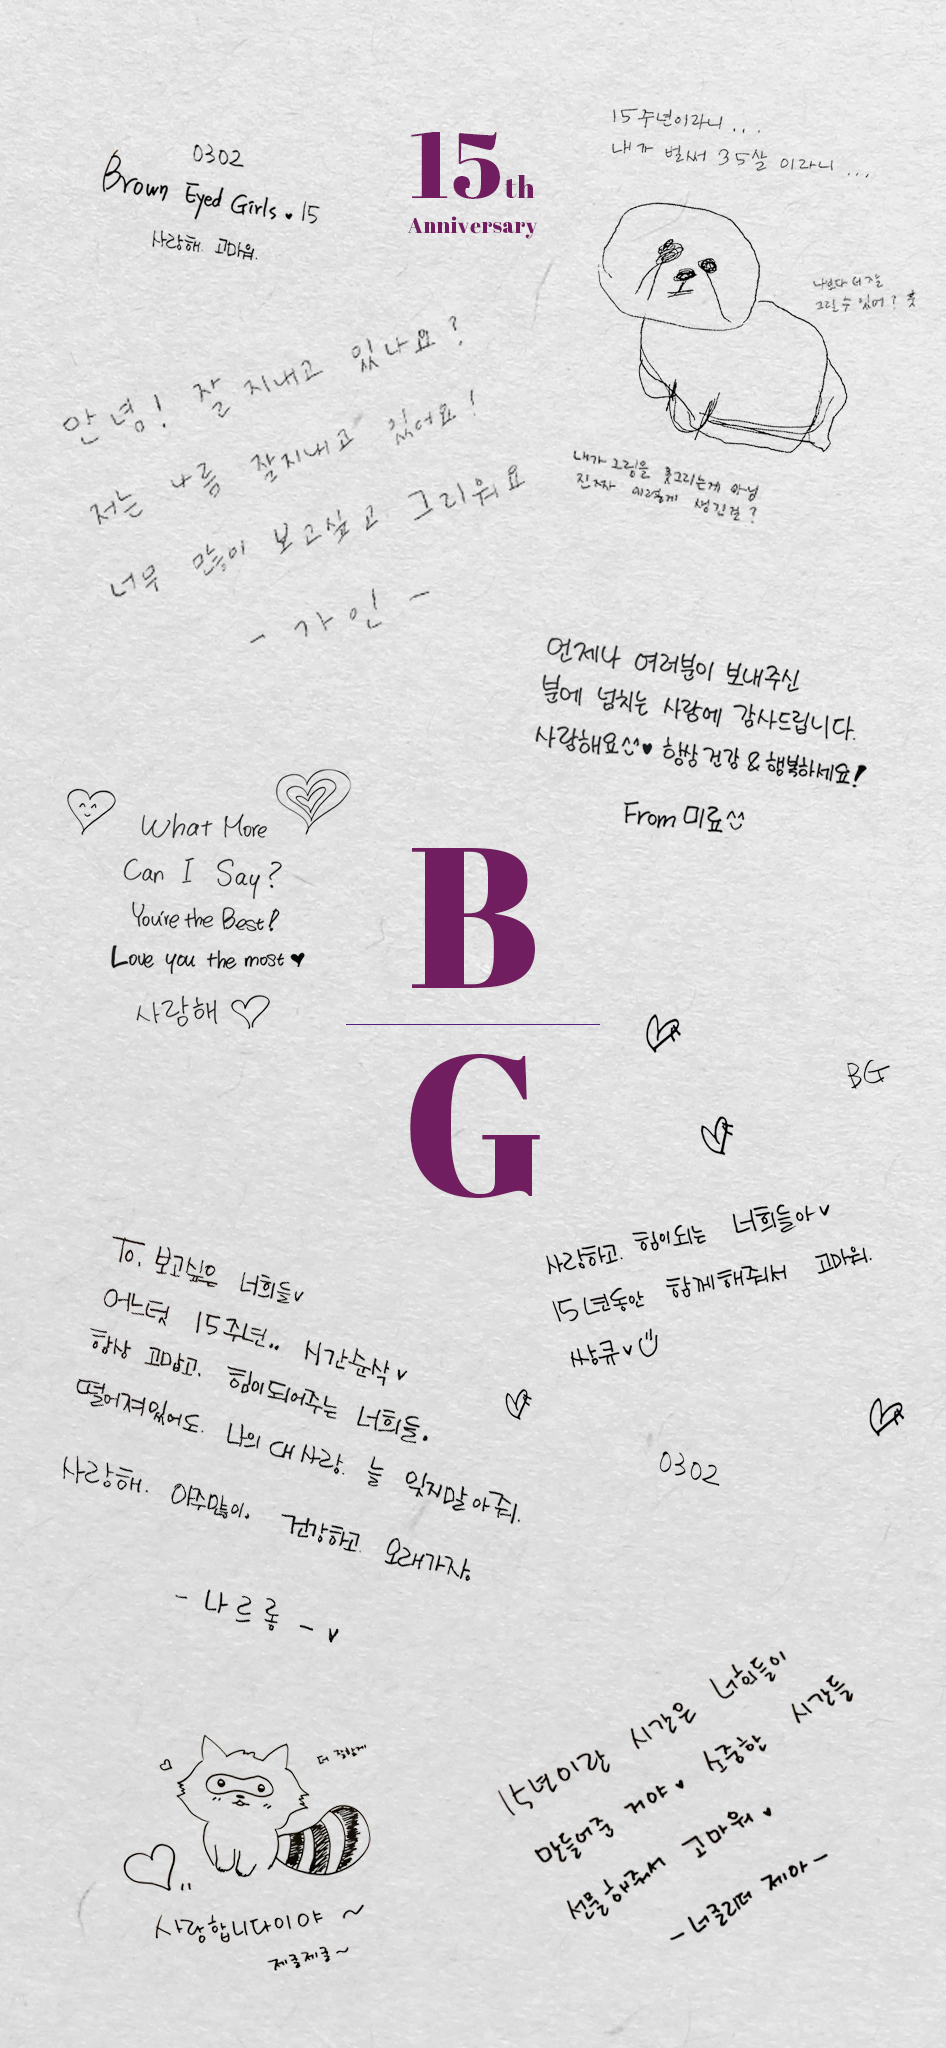 15th
Anniversary
0302
Brown Eyed Girls ♥ 15
사랑해. 고마워.
15주년이라니...
내가 벌써 35살 이라니...
나보다 더 잘
그릴 수 있어? 훗
내가 그림을 못그리는게 아님
진짜 이렇게 생긴걸?
안녕! 잘 지내고 있나요?
저는 나름 잘지내고 있어요!
너무 많이 보고싶고 그리워요
- 가인 -
언제나 여러분이 보내주신
분에 넘치는 사랑에 감사드립니다.
사랑해요^^♥ 항상 건강 & 행복하세요!
From 미료^^
What More
Can I Say?
You're the Best!
Love you the most ♥
사랑해 ♡
B
G
BG
사랑하고. 힘이되는 너희들아♥
15년동안 함께해줘서 고마워.
쌩큐♥
To. 보고싶은 너희들♥
어느덧 15주년.. 시간순삭♥
항상 고맙고. 힘이되어주는 너희들.
떨어져있어도. 나의 대사랑. 늘 잊지말아줘.
사랑해. 아주많이. 건강하고. 오래가자.
- 나르롷 - ♥
0302
더 잘할게
사랑합니다이야 ~
제클제클~
15년이란 시간은 너희들이
만들어준 거야♥ 소중한 시간들
선물해줘서 고마워♥
- 너클리더 제아 -